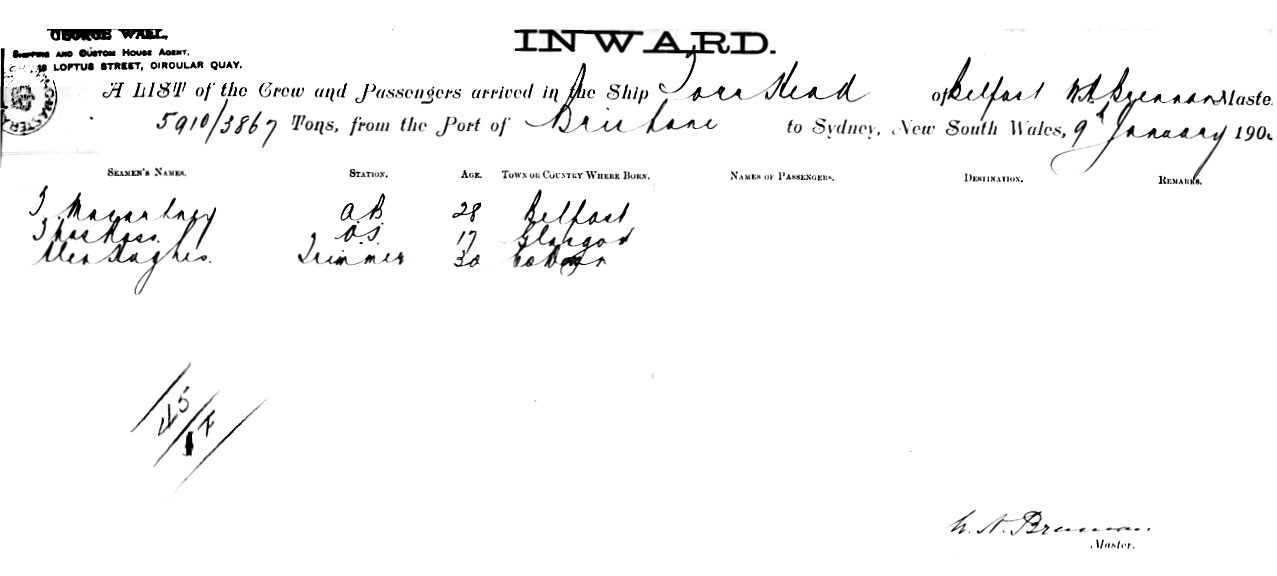 GEORGE WALL,
SHIPPING AND CUSTOM HOUSE AGENT,
LOFTUS STREET, CIRCULAR QUAY.
INWARD.
A LIST of the Crew and Passengers arrived in the Ship Torr Head of Belfast W. A. Brennan Maste
5910/3867 Tons, from the Port of Brisbane to Sydney, New South Wales, 9th January 190
SEAMEN'S NAMES. STATION. AGE. TOWN OR COUNTRY WHERE BORN. NAMES OF PASSENGERS. DESTINATION. REMARKS.
J. Macartney A.B 28 Belfast
Thos Ross O.S. 17 Glasgow
Alex Hughes. Trimmer 30 Co Down
45
1 F
W. A. Brennan.
Master.